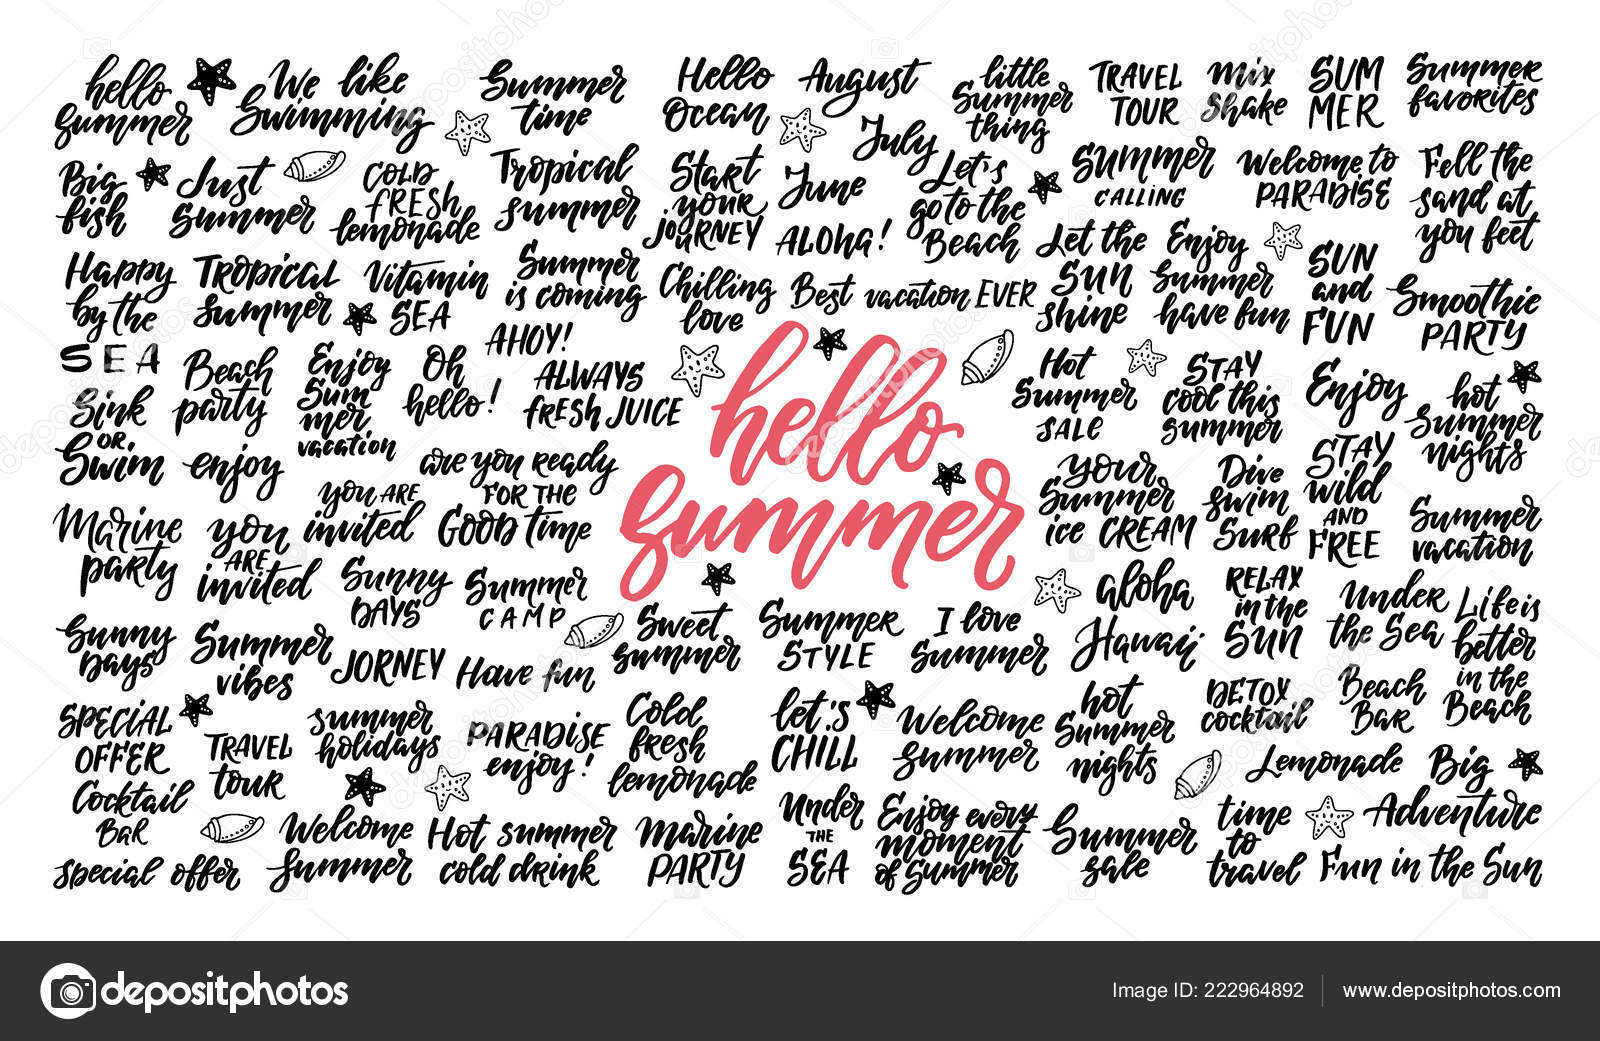 hello
summer
We like
Swimming
Summer
time
Hello
Ocean
August
July
little
Summer
thing
TRAVEL
TOUR
mix
shake
SUM
MER
Summer
favorites
Big
fish
Just
summer
COLD
FRESH
lemonade
Tropical
summer
Start
your
JOURNEY
June
ALOHA!
Let's
go to the
Beach
summer
CALLING
Welcome to
PARADISE
Fell the
sand at
you feet
Happy
by the
SEA
TROPICAL
summer
Vitamin
SEA
Summer
is coming
Chilling
love
Best vacation EVER
Let the
SUN
shine
Enjoy
Summer
have fun
SUN
and
FUN
Smoothie
PARTY
AHOY!
Sink
OR
Swim
Beach
party
Enjoy
Sum
mer
vacation
Oh
hello!
ALWAYS
fRESH JUICE
hello
summer
Hot
Summer
SALE
STAY
cool this
summer
Enjoy
hot
Summer
nights
enjoy
are you ready
FOR THE
GOOD time
you ARE
invited
your
Summer
ice CREAM
Dive
swim
SURF
STAY
wild
AND
FREE
Summer
vacation
Marine
party
you
ARE
invited
Sunny
DAYS
Summer
CAMP
aloha
Hawaii
RELAX
in the
SUN
Under
the Sea
Life is
better
in the
Beach
Sunny
Days
Summer
vibes
JORNEY
Have fun
Sweet
summer
Summer
STYLE
I love
Summer
SPECIAL
OFFER
TRAVEL
tour
summer
holidays
PARADISE
enjoy!
Cold
fresh
lemonade
let's
CHILL
Welcome
summer
hot
Summer
nights
DETOX
cocktail
Beach
BAR
Cocktail
BAR
Lemonade
Big
Adventure
special offer
Welcome
Summer
Hot summer
cold drink
Marine
PARTY
Under
THE
SEA
Enjoy every
moment
of Summer
Summer
sale
time
to
travel
Fun in the Sun
depositphotos
Image ID: 222964892
www.depositphotos.com